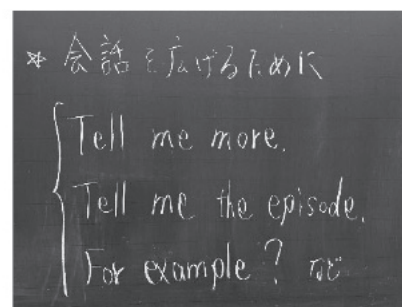 * 会話を広げるために
Tell me more.
Tell me the episode.
For example? など